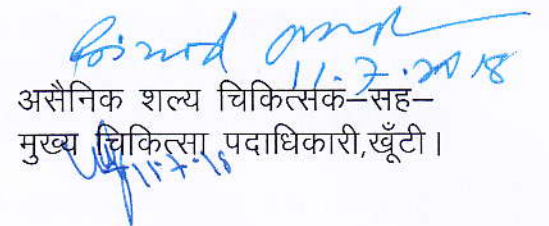 11.7.2018
असैनिक शल्य चिकित्सक–सह–
मुख्य चिकित्सा पदाधिकारी,खूँटी।
11.7.18